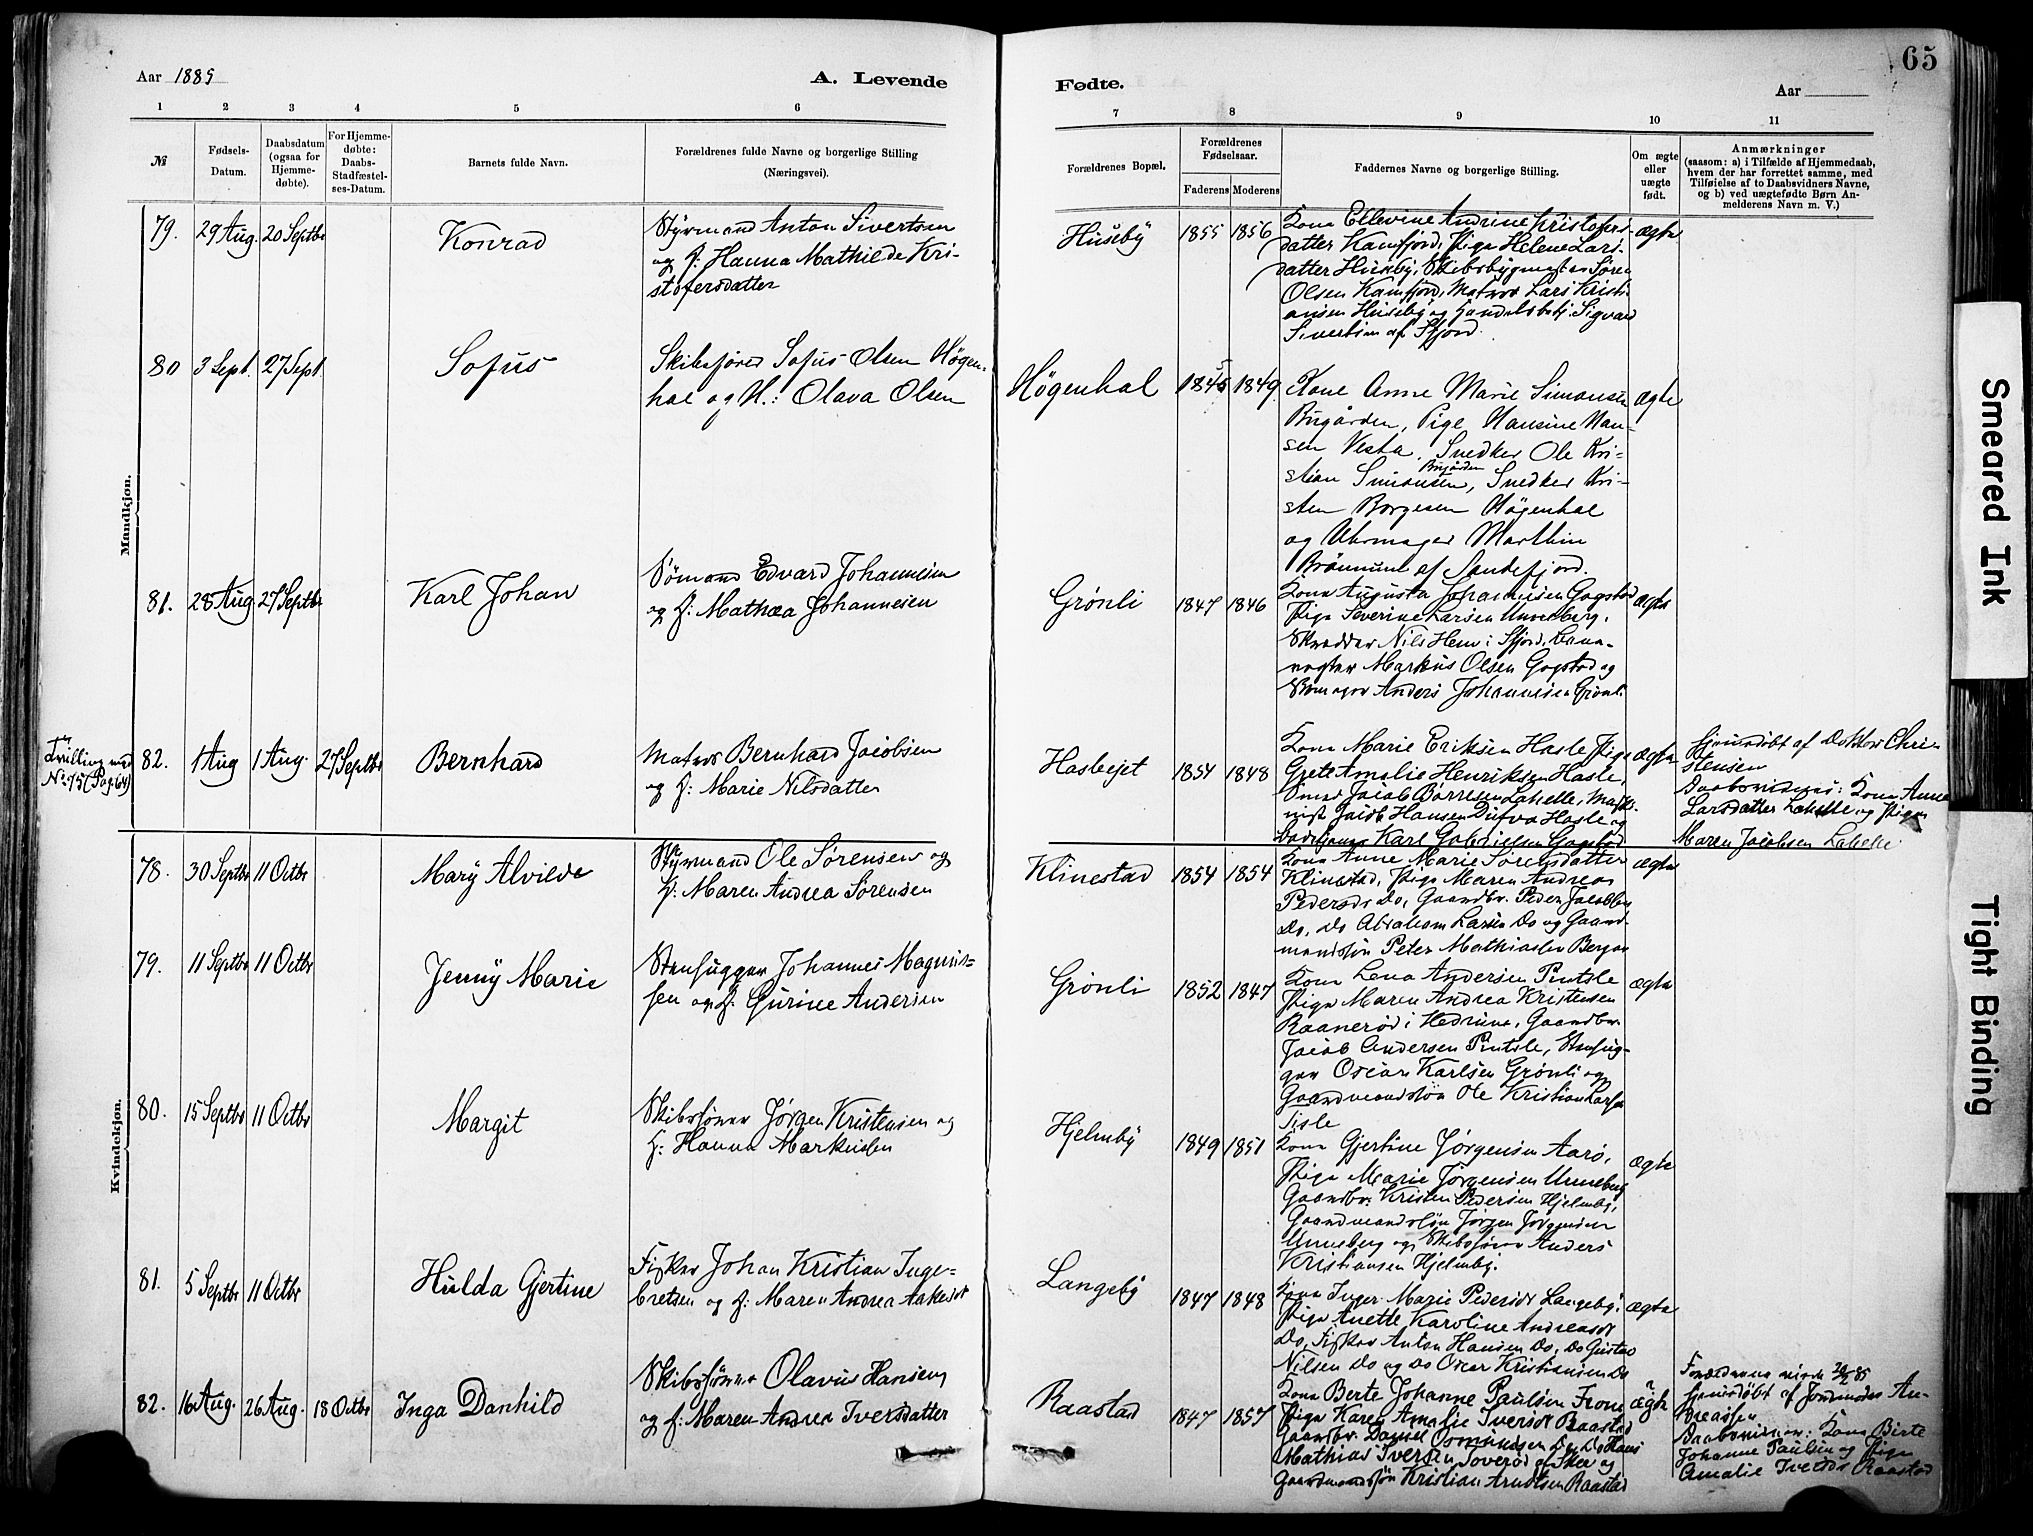 65
Aar 1885
A. Levende
Fødte.
Aar
1 2 3 4 5 6
7 8 9 10 11
№
Fødsels-
Datum.
Daabsdatum
(ogsaa for
Hjemme-
døbte).
For Hjemme-
døbte:
Daabs-
Stadfæstel-
ses-Datum.
Barnets fulde Navn.
Forældrenes fulde Navne og borgerlige Stilling
(Næringsvei).
Forældrenes Bopæl.
Forældrenes
Fødselsaar.
Faderens Moderens
Faddernes Navne og borgerlige Stilling.
Om ægte
eller
uægte
født.
Anmærkninger
(saasom: a) i Tilfælde af Hjemmedaab,
hvem der har forrettet samme, med
Tilføielse af to Daabsvidners Navne,
og b) ved uægtefødte Børn An-
melderens Navn m. V.)
Mandkjøn.
79. 29 Aug. 20 Septbr
Konrad
Styrmand Anton Sivertsen
og H: Hanna Mathilde Kri-
stofersdatter
Huseby 1855 1856
Kona Ellevine Andrine Kristofers-
datter Kamfjord, Pige Helene Lars-
datter Huseby, Skibsbygmester Søren
Olsen Kamfjord, Matros Lars Kristi-
ansen Huseby og Handelsbetj. Sigvard
Sivertsen af Sfjord.
ægte
80 3 Sept. 27 Sept.
Sofus
Skibsfører Sofus Olsen Høgen-
hal og H.: Olava Olsen
Høgenhal 1845 1849
Kone Anne Marie Simonsen
Bugården, Pige Hansine Han-
sen Vesta, Snedker Ole Kri-
Bugården
stian Simonsen, Snedker Kri-
sten Borgesen Høgenhal
og Uhrmager Marthin
Brönnum af Sandefjord.
ægte
81. 28 Aug. 27 Septbr
Karl Johan
Sømand Edvard Johannesen
og H: Mathea Johannesen
Grönli 1847 1846
Kona Augusta Johannesen Gogstad
Pige Severine Larsen Unneberg,
Skrædder Nils Hem i Sfjord, Bane-
vogter Markus Olsen Gogstad og
Anders Johannesen Grönli
ægte
Tvilling med
No 75 (Pag 64)
82. 1 Aug 1 Aug. 27 Septbr
Bernhard
Matros Bernhard Jacobsen
og H: Marie Nilsdatter
Haslejet 1854 1848
Kona Marie Eriksen Hasle, Pige
Grete Amalie Henriksen Hasle,
Jacob Börresen Lahelle,
Jacob Hansen Hasle og
Karl Gabrielsen Gogstad
ægte
Hjemdøbt af Doktor Chri-
stensen
Daabsvidner: Kona Anne
Larsdatter Lahelle og Pigen
Maren Jacobsen Lahelle
Kvindekjøn.
78. 30 Septbr 11 Octbr
Mary Alvilde
Styrmand Ole Sørensen og
H: Maren Andrea Sørensen
Klinestad 1854 1854
Kona Anne Marie Sørensdatter
Klinestad, Pige Maren Andrea
Pedersdr Do, Gaardbr. Peder Jacobsen
Do, do Abraham Larsen Do og Gaard-
mandssön Peter Mathiassen Bergan
ægte
79. 11 Septbr 11 Octbr
Jenny Marie
Stenhugger Johannes Magnus-
sen og H: Gurine Andersen
Grönli 1852 1847
Kona Lena Andersen Pindsle
Pige Maren Andrea Kristensen
Raanerød i Hedrum, Gaardbr.
Jacob Andersen Pindsle, Stenhug-
ger Oscar Karlsen Grönli og
Gaardmandssön Ole Kristian Larsen
Sisle
ægte
80. 15 Septbr 11 Octbr
Margit
Skibsfører Jørgen Kristensen og
H: Hanna Markussen
Hjelmby 1849 1851
Kona Gjertine Jørgensen Aarø,
Pige Marie Jørgensen Unneberg
Gaardbr. Kristen Pedersen Hjelmby,
Gaardmandssön Jørgen Jørgensen
Unneberg og Skibsfører Anders
Kristiansen Hjelmby.
ægte
81. 5 Septbr 11 Octbr
Hulda Gjertine
Fisker Johan Kristian Inge-
bretsen og H: Maren Andrea Aakesdt
Langeby 1847 1848
Kona Inger Marie Pedersdt Langeby,
Pige Anette Karoline Andreasdt
Do, Fisker Anton Hansen Do, Do Gustav
Nilsen Do og Do Oscar Kristiansen Do
ægte
82. 16 Aug. 26 Aug. 18 Octbr
Inga Danhild
Skibsfører Olavus Hansen
og H: Maren Andrea Iversdatter
Raastad 1847 1857
Kona Berte Johanne Paulsen
Pige Karen Amalie Iversdt Raastad
Gaardbr. Daniel Do Hans
Mathias Iversen og
Gaardmandssön Kristian Arntsen Raastad
ægte
Forældrene viede
Hjemdøbt af Jordmoder An-
dreassen
Daabsvidner: Kona Birte
Johanne Paulsen og Pige
Amalie Iversdr Raastad
Smeared Ink
Tight Binding